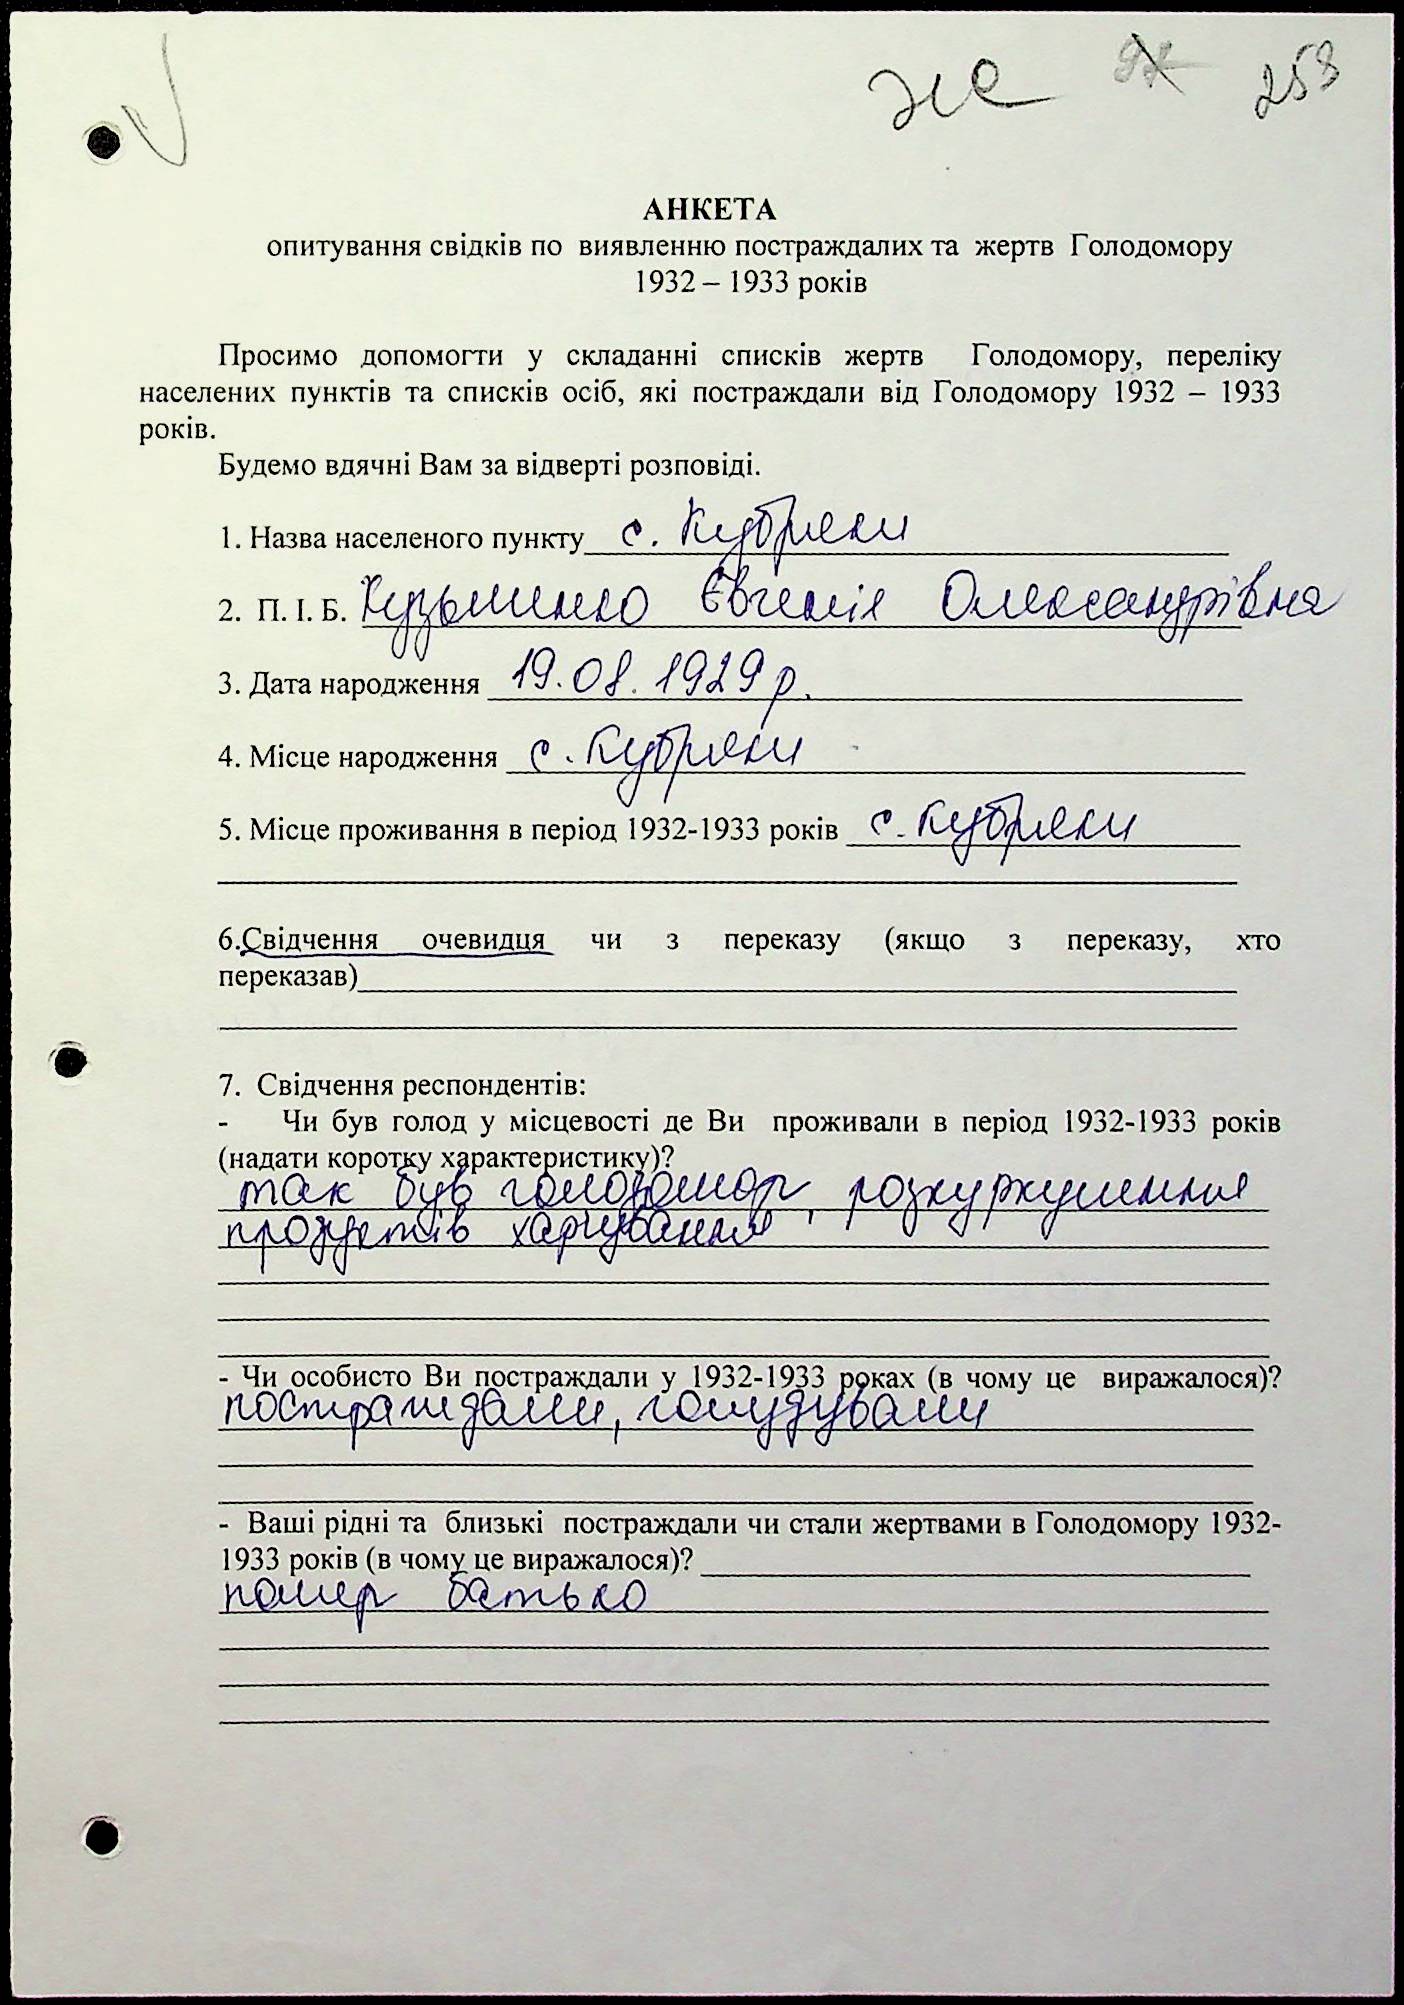 же 97 253
АНКЕТА
опитування свідків по виявленню постраждалих та жертв Голодомору
1932 – 1933 років
Просимо допомогти у складанні списків жертв Голодомору, переліку
населених пунктів та списків осіб, які постраждали від Голодомору 1932 – 1933
років.
Будемо вдячні Вам за відверті розповіді.
1. Назва населеного пункту с. Кубряки
2. П. І. Б. Кузьменко Євгенія Олександрівна
3. Дата народження 19.08.1929 р.
4. Місце народження с. Кубряки
5. Місце проживання в період 1932-1933 років с. Кубряки
6.Свідчення очевидця чи з переказу (якщо з переказу, хто
переказав)
7. Свідчення респондентів:
- Чи був голод у місцевості де Ви проживали в період 1932-1933 років
(надати коротку характеристику)?
так був голодомор, розкуркулення
продуктів харчування
- Чи особисто Ви постраждали у 1932-1933 роках (в чому це виражалося)?
постраждали, голудували
- Ваші рідні та близькі постраждали чи стали жертвами в Голодомору 1932-
1933 років (в чому це виражалося)?
помер батько